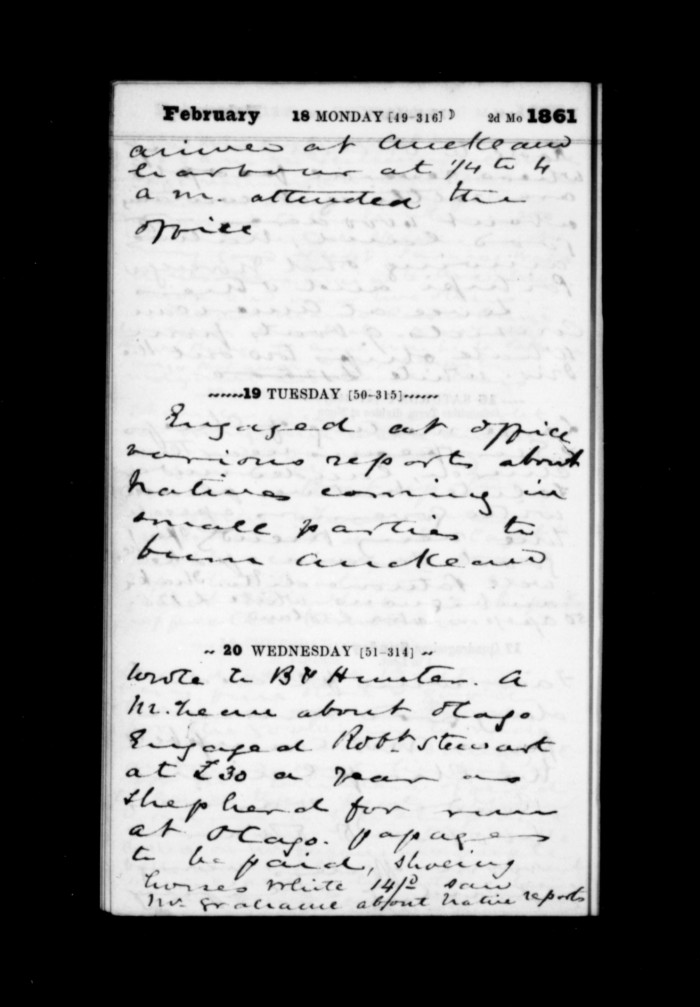 February 18 MONDAY [49-316] 2d Mo 1861
arived at Auckland
harbour at 1/4 to 4
a m. attended the
office
19 TUESDAY [50-315]
Engaged at office
various reports about
natives coming in
small parties to
burn Auckland
20 WEDNESDAY [51-314]
Wrote to Hunter. A
McLean about Otago
Engaged Robt Stewart
at £30 a year as
shepherd for run
at Otago. papages
to be paid, shoeing
horses White 14/ saw
Mr Grahame about native reports